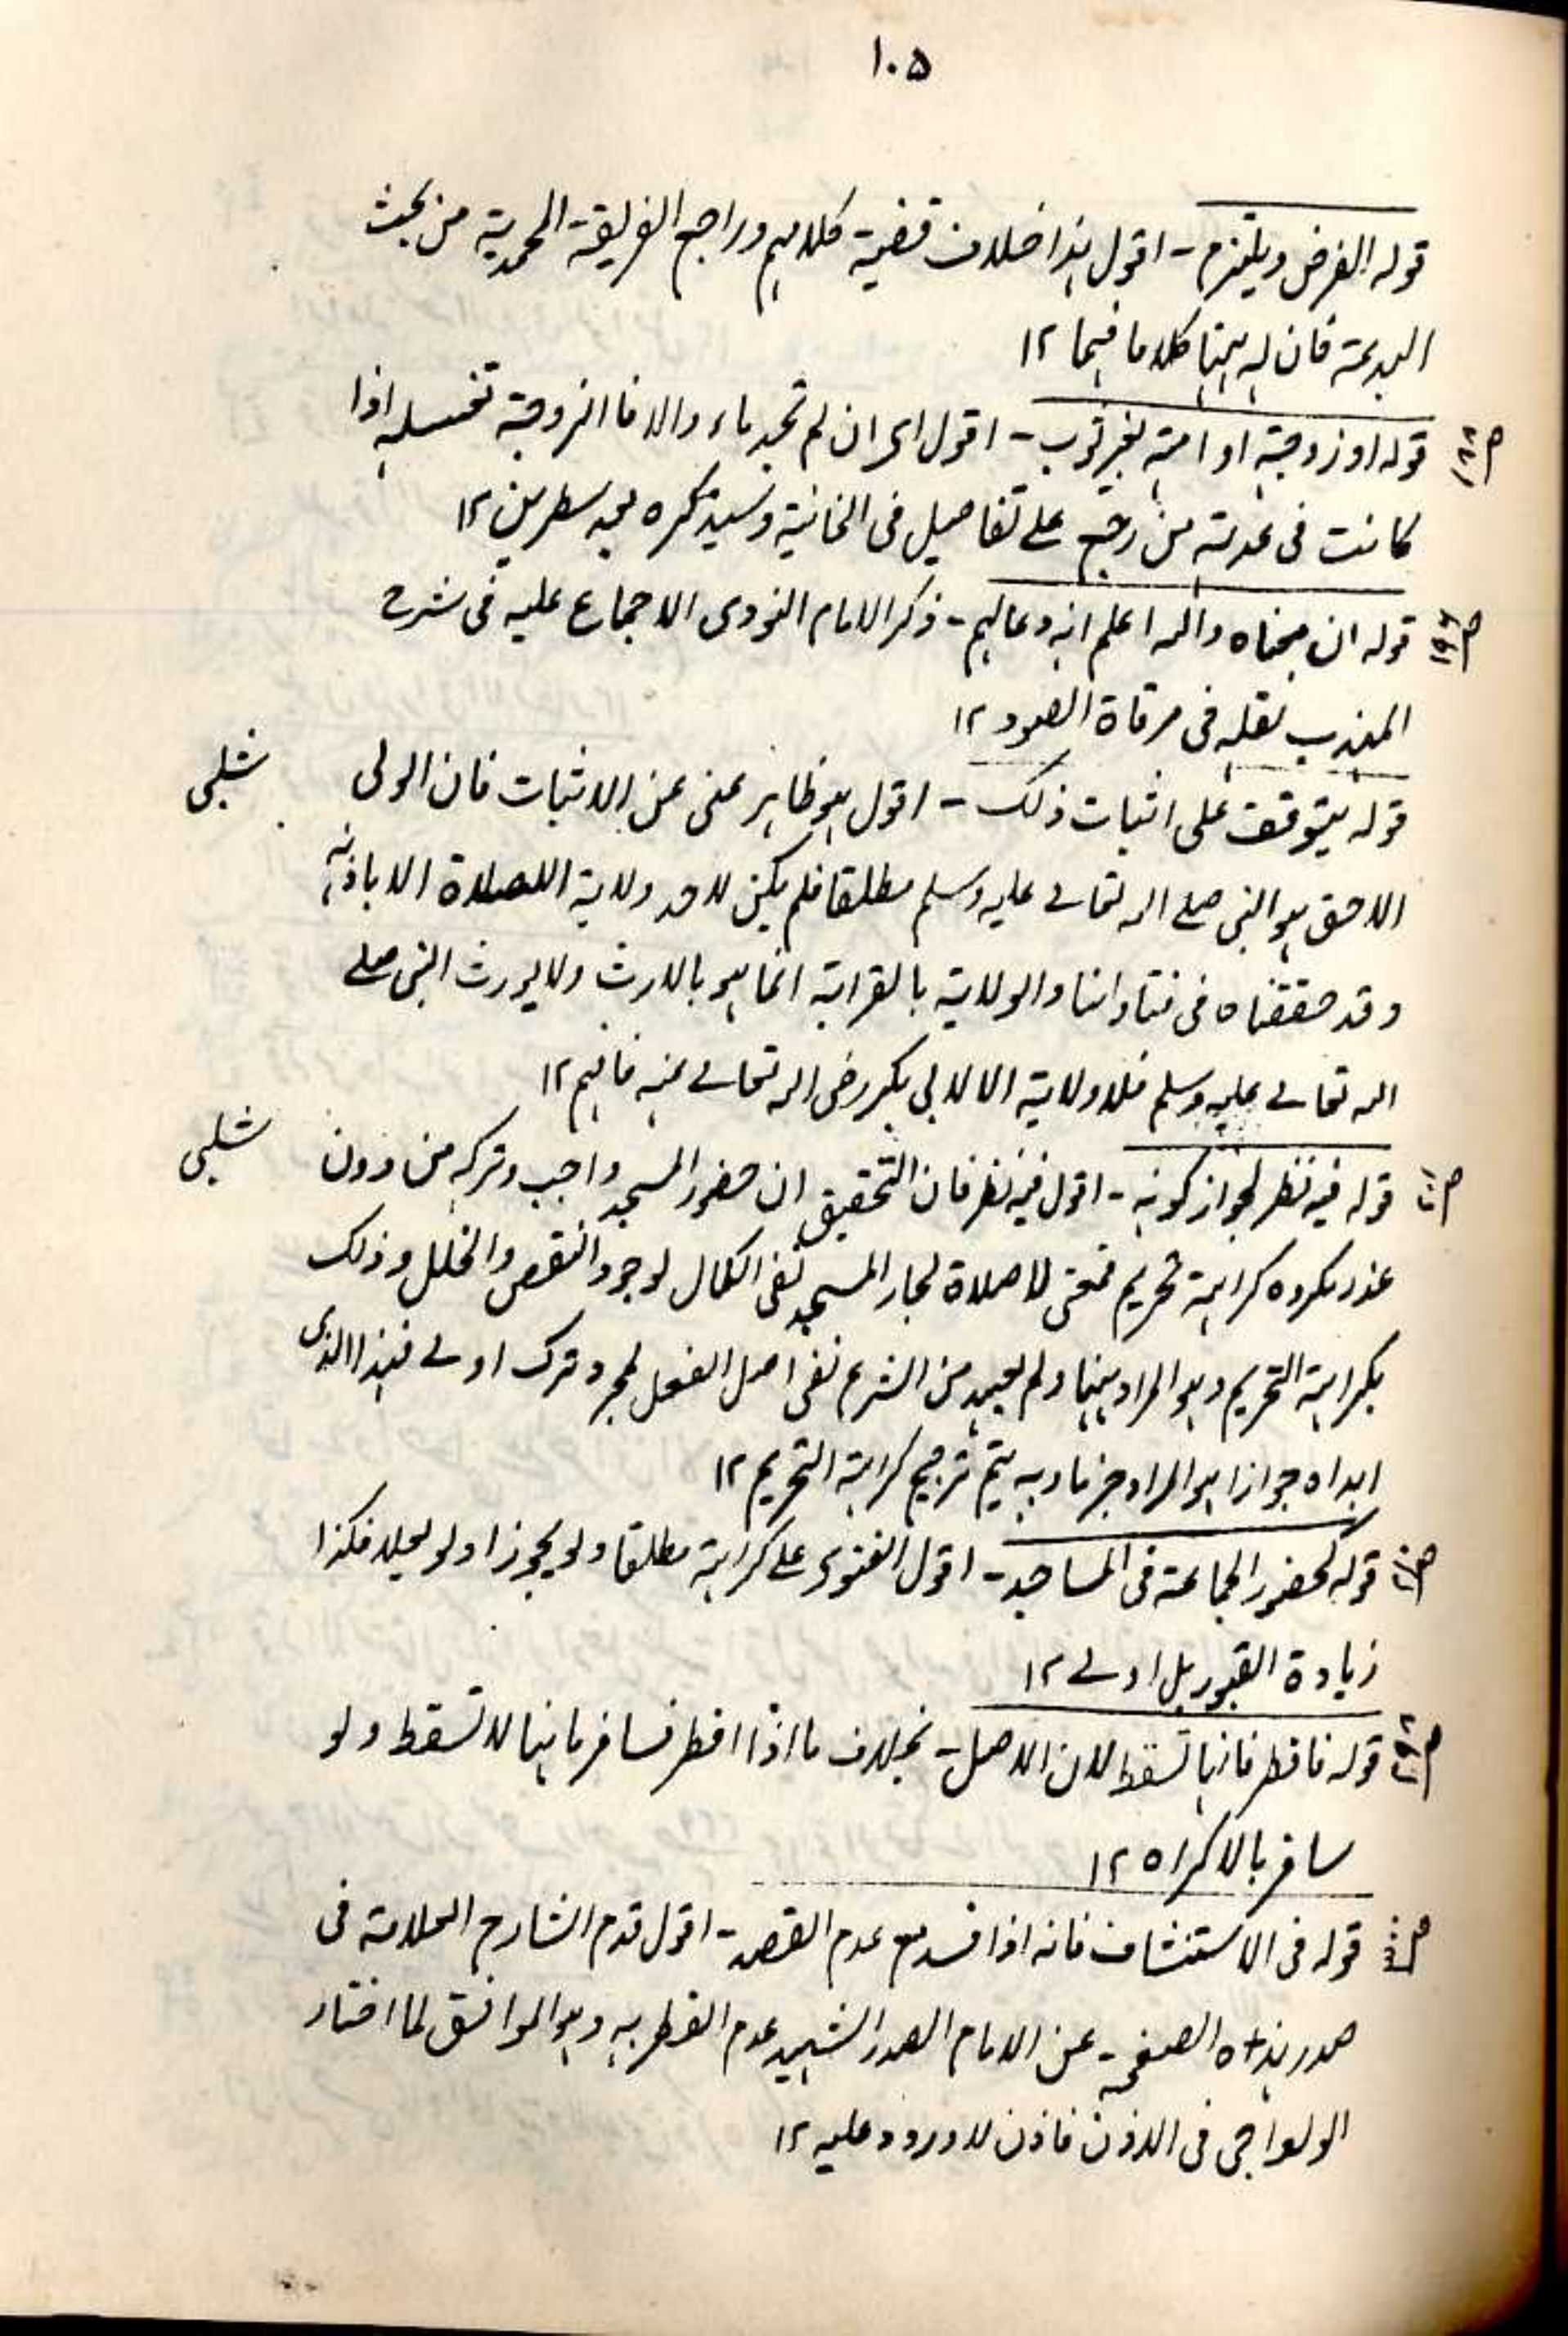 ١٠٥
قوله الفرض ويلتزم - اقول هذا خلاف قضية كلامهم وراجع الطريقة المحمدية من بحث
البدعة فان له ههنا كلاما فيها ١٢
ص١٨٨ قوله او زوجته او امته بغير ثوب - اقول اى ان لم تجد ماء والا فالزوجة تغسله اذا
كانت فى عدته من رجع على تفاصيل فى الخانية وسيذكره بعد سطرين ١٢
ص١٩٦ قوله ان معناه والله اعلم انه دعا لهم - ذكر الامام النووى الاجماع عليه فى شرح
المهذب نقله فى مرقاة الصعود ١٢
قوله يتوقف على اثبات ذلك - اقول هو ظاهر غنى عن الاثبات فان الولى شلبى
الاحق هو النبى صلى الله تعالى عليه وسلم مطلقا فلم يكن لاحد ولاية الصلاة الا باذنه
وقد حققناه فى فتاوانا والولاية بالقرابة انما هو بالارث ولا يورث النبى صلى
الله تعالى عليه وسلم فلا ولاية الا لابى بكر رضى الله تعالى عنه فافهم ١٢
قوله فيه نظر لجواز كونه - اقول فيه نظر فان التحقيق ان حضور المسجد واجب وتركه من دون شلبى
عذر مكروه كراهة تحريم فمعنى لا صلاة لجار المسجد نفى الكمال لوجود النقص والخلل وذلك
بكراهة التحريم وهو المراد ههنا ولم يعهد من الشرع نفى اصل الفعل لمجرد ترك اولى فهذا الذى
ابداه جوازا هو المراد جزما وبه يتم ترجيح كراهة التحريم ١٢
قوله كحضور الجماعة فى المساجد - اقول الفتوى على كراهية مطلقا ولو عجوزا ولو ليلا فكذا
زيادة القبور بل اولى ١٢
قوله فافطر فانها تسقط لان الاصل - بخلاف ما اذا افطر فسافر فانها لا تسقط ولو
سافر بالاكراه ١٢
قوله فى الاستنشاف فانه اذا فسد مع عدم القصد - اقول قدم الشارح العلامة فى
صدر هذه الصفحة عن الامام الصدر الشهيد عدم الفطر به وهو الموافق لما اختار
الولوالجى فى الاذن فاذن لا ورود عليه ١٢